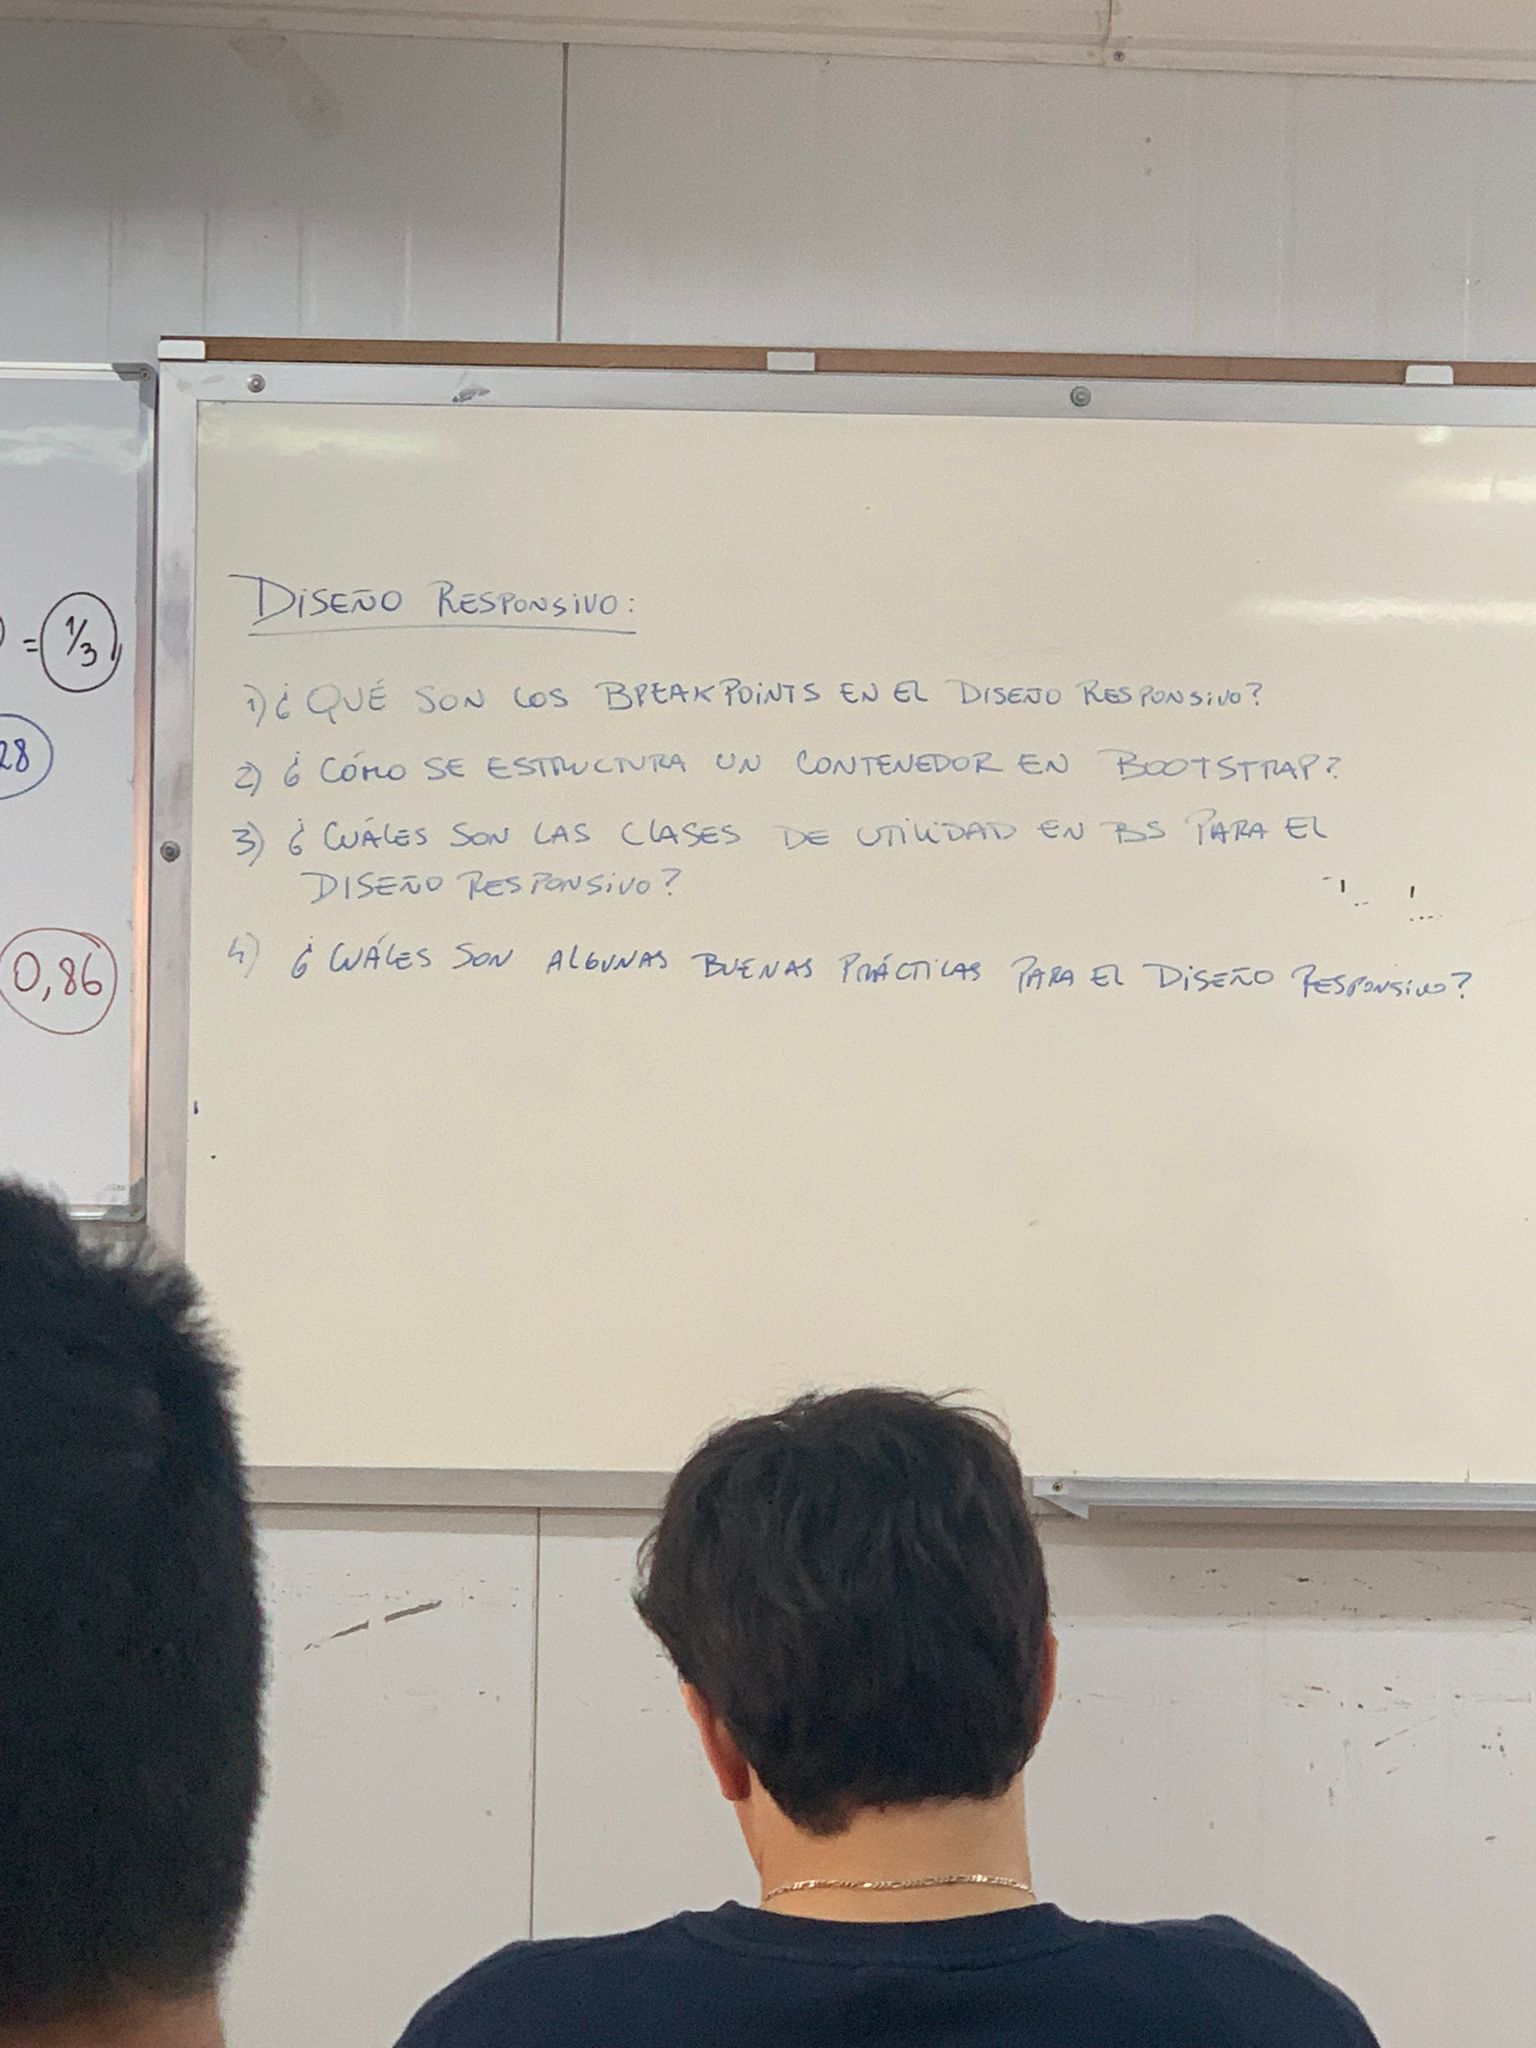 = 1/3
28
0,86
DISEÑO RESPONSIVO:
1) ¿QUÉ SON LOS BREAKPOINTS EN EL DISEÑO RESPONSIVO?
2) ¿CÓMO SE ESTRUCTURA UN CONTENEDOR EN BOOTSTRAP?
3) ¿CUÁLES SON LAS CLASES DE UTILIDAD EN BS PARA EL
DISEÑO RESPONSIVO?
4) ¿CUÁLES SON ALGUNAS BUENAS PRÁCTICAS PARA EL DISEÑO RESPONSIVO?